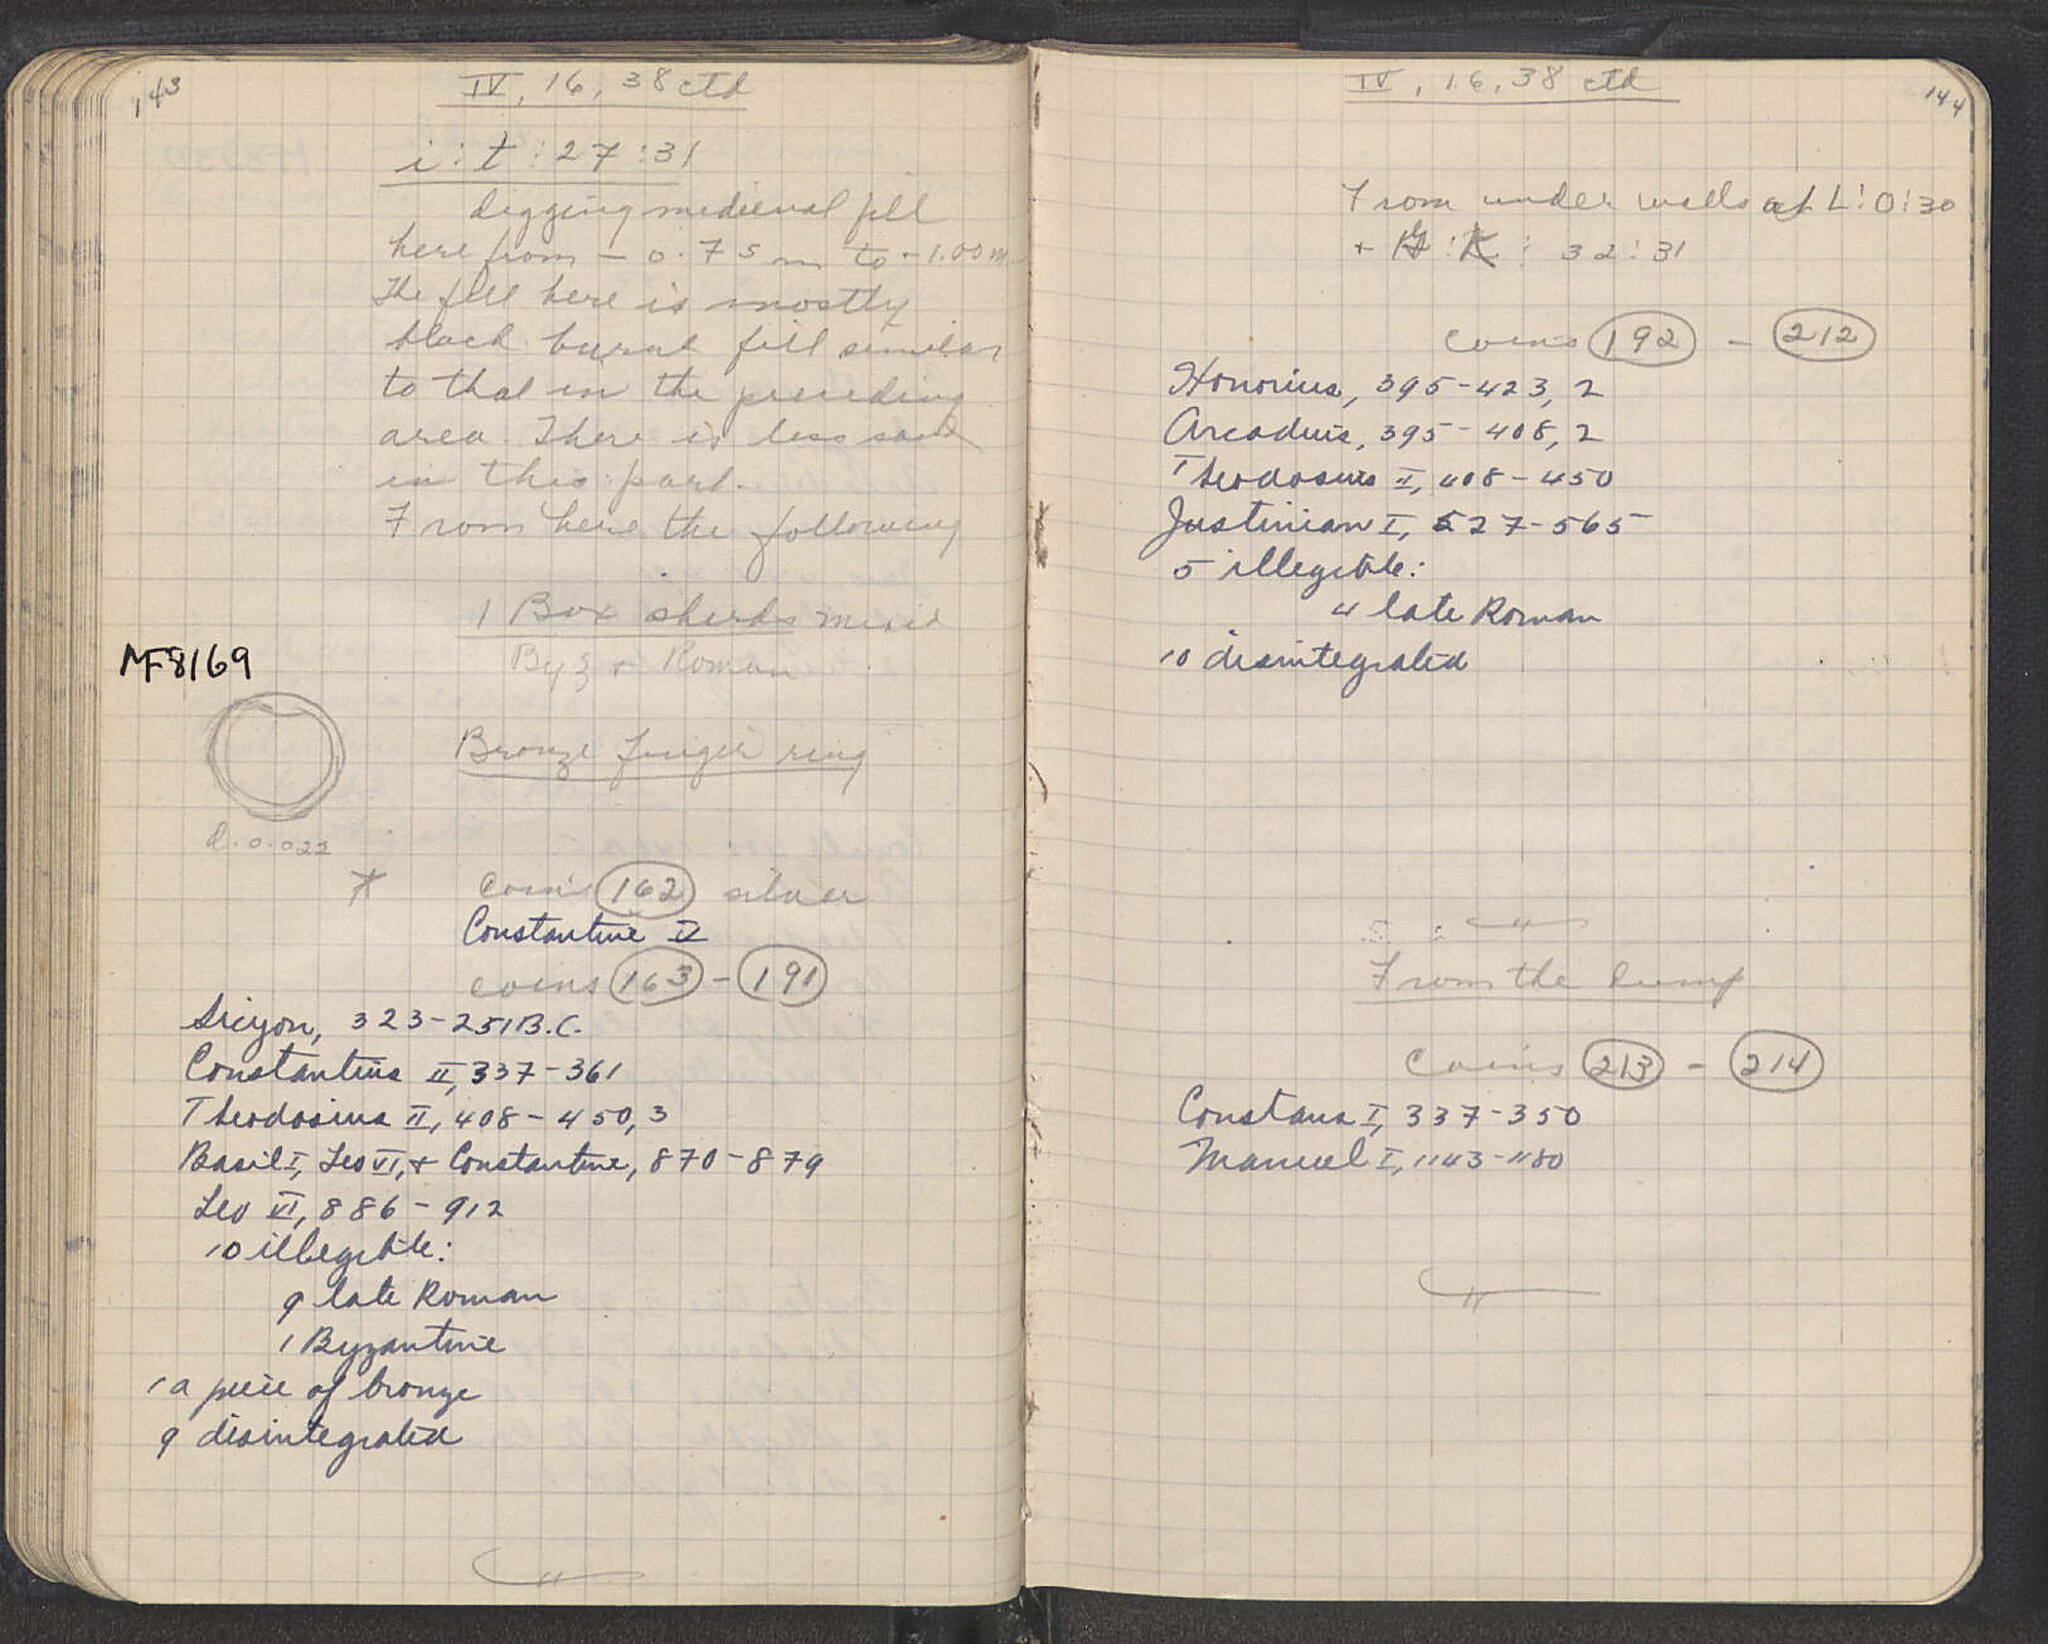 143
IV, 16, 38 ctd
i:t:27:31
digging medieval fill
here from - 0.75 m to - 1.00 m.
The fill here is mostly
black burnt fill similar
to that in the preceding
area. There is less sand
in this part.
From here the following
1 Box sherds mixed
Byz + Roman
MF8169
Bronze finger ring
d. 0.022
* coin 162 silver
Constantine IV
coins 163 - 191
Sicyon, 323-251 B.C.
Constantius II, 337-361
Theodosius II, 408-450, 3
Basil I, Leo VI, + Constantine, 870-879
Leo VI, 886-912
10 illegible:
9 late Roman
1 Byzantine
1 a piece of bronze
9 disintegrated
IV, 16, 38 ctd
144
From under walls at L:O:30
+ : K : 32:31
coins 192 - 212
Honorius, 395-423, 2
Arcadius, 395-408, 2
Theodosius II, 408-450
Justinian I, 527-565
5 illegible:
4 late Roman
10 disintegrated
From the dump
coins 213 - 214
Constans I, 337-350
Manuel I, 1143-1180